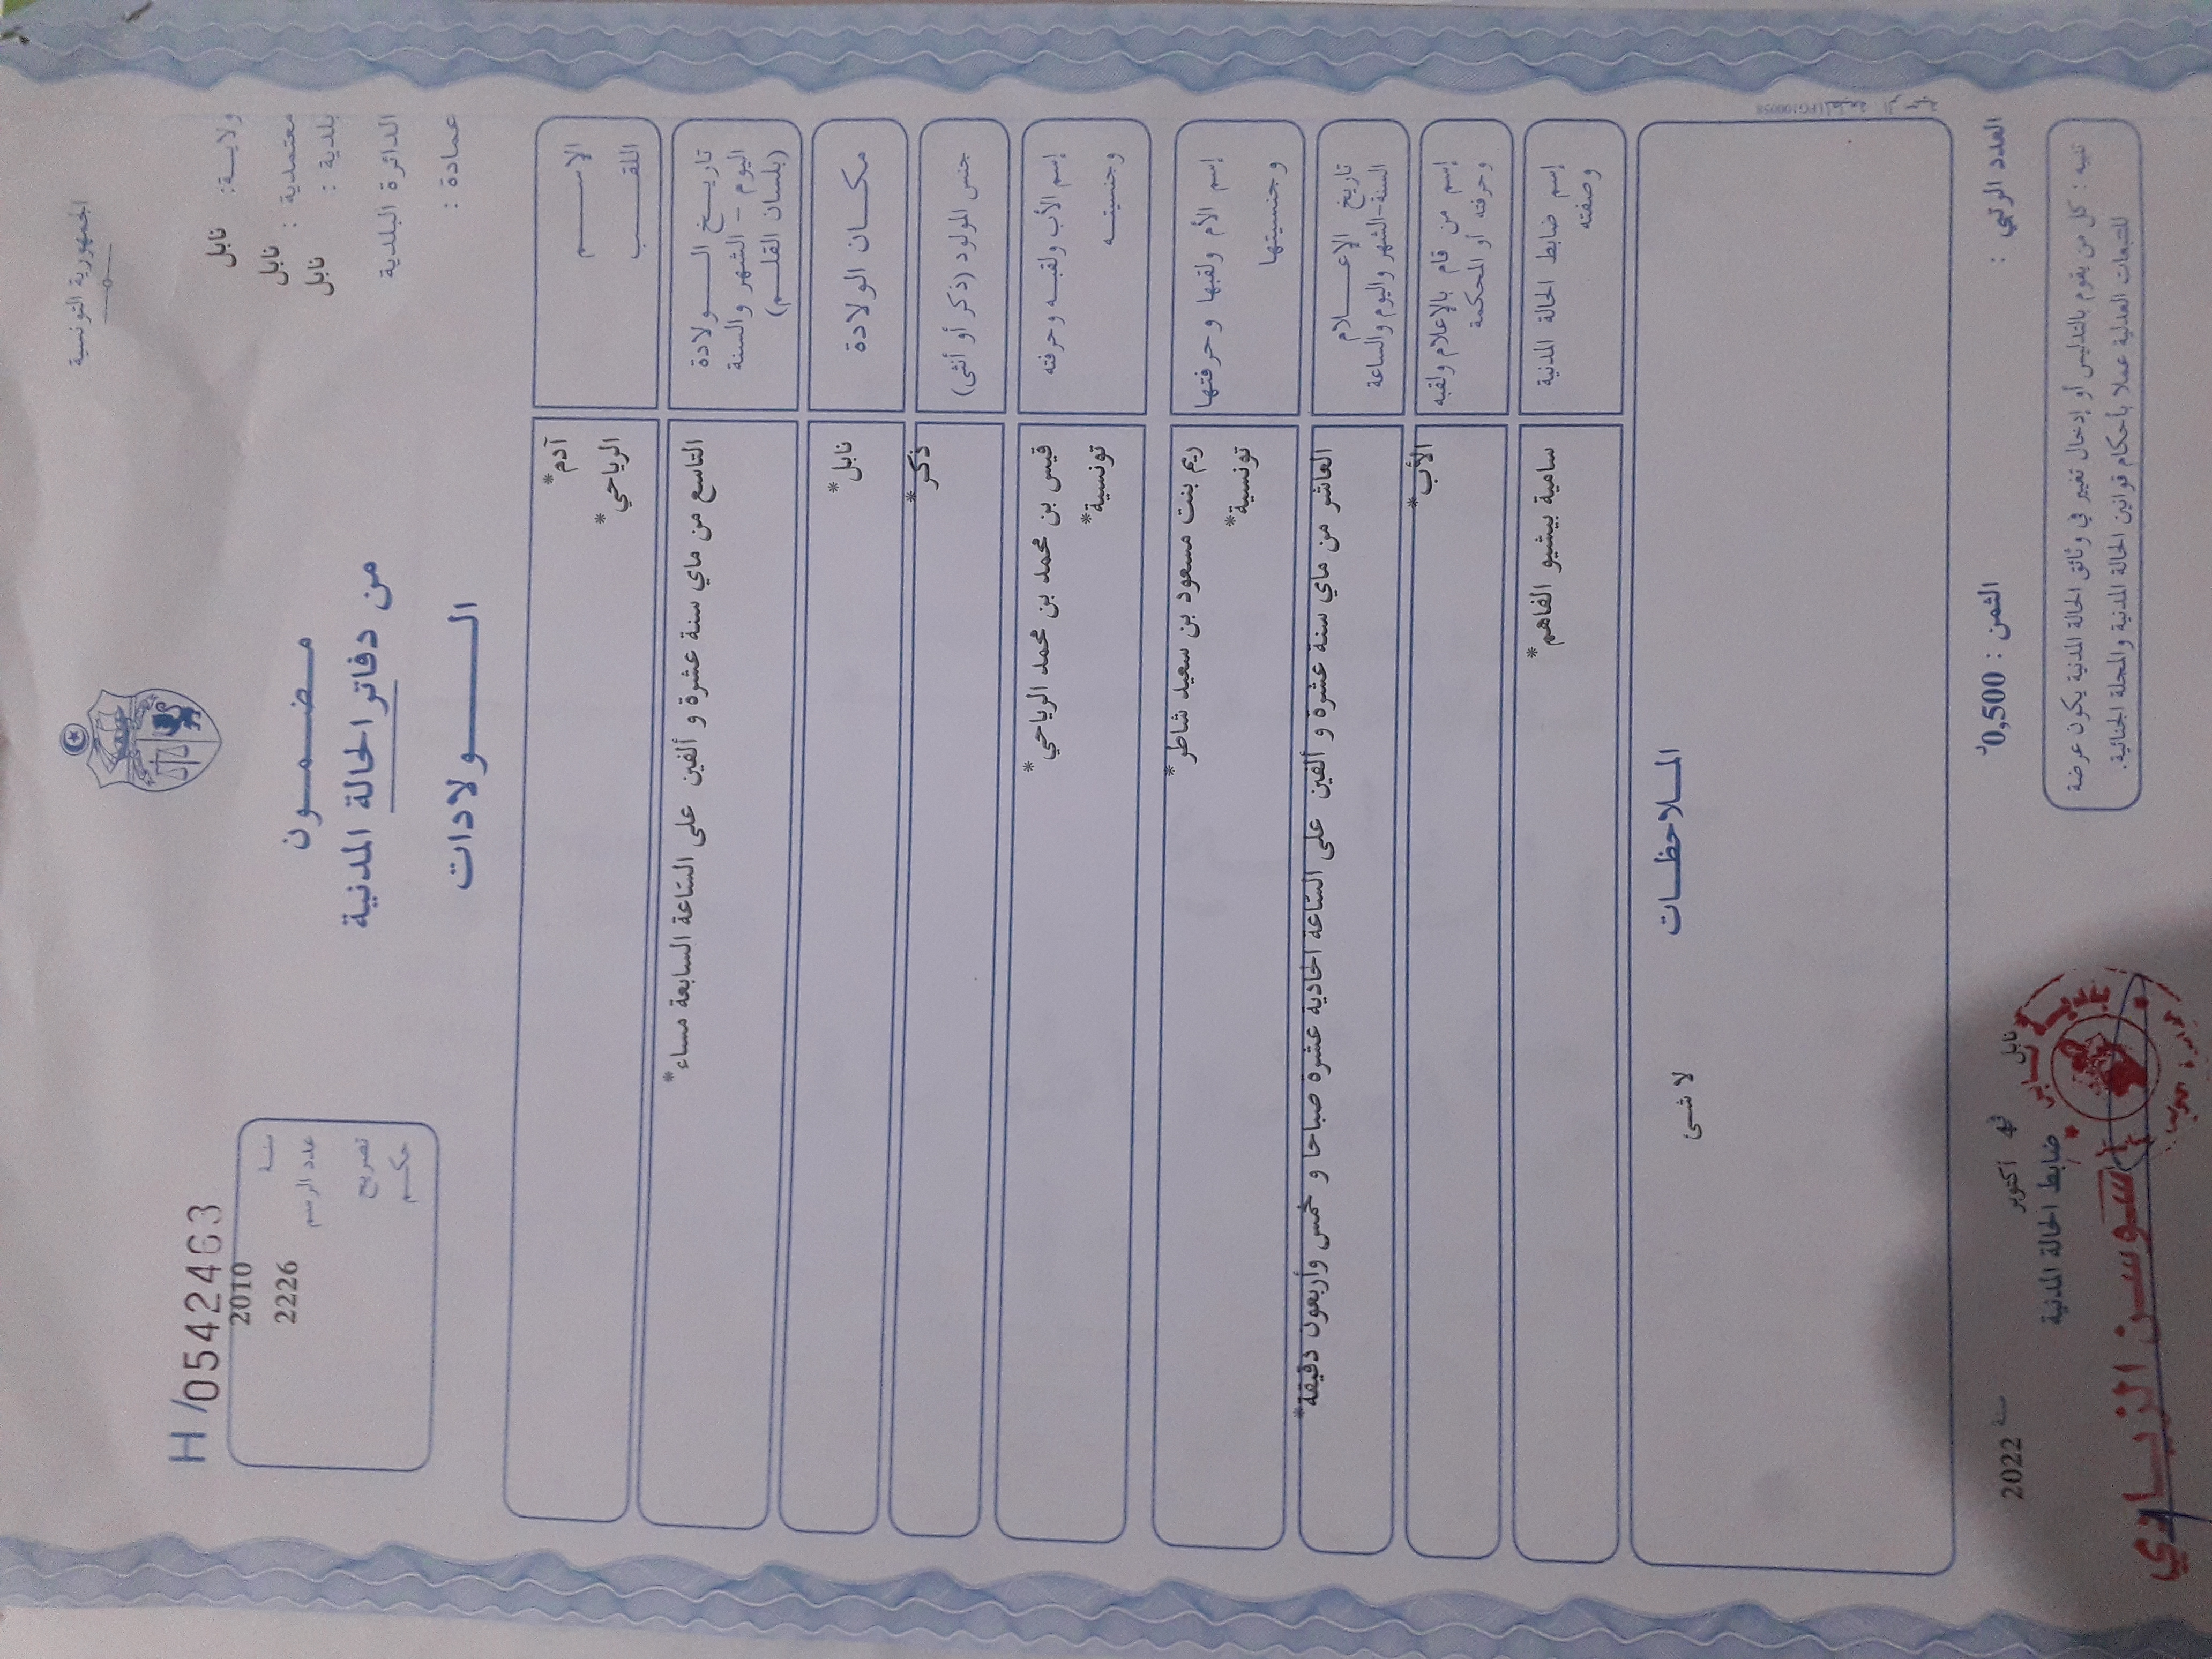 الجمهورية التونسية
ولايـــة: نابل
معتمدية : نابل
بلدية : نابل
الدائرة البلدية
عمادة :
مـضـمــون
من دفاتر الحالة المدنية
الــــولادات
H /0542463
سنة 2010
عدد الرسم 2226
تصريح
حكــم
الاســـم آدم*
اللقـــب الرياحي*
تاريــخ الـــولادة
اليوم – الشهر والسنة
(بلسان القلـــم)
التاسع من ماي سنة عشرة و ألفين على الساعة السابعة مساء*
مكــان الولادة نابل*
جنس المولود (ذكر أو أنثى) ذكر*
إسم الأب ولقبـه وحرفته قيس بن محمد بن محمد الرياحي*
وجنسيتــه تونسية*
إسم الأم ولقبها وحرفتها ريم بنت مسعود بن سعيد شاطر*
وجنسيتها تونسية*
تاريخ الإعــــلام
السنة-الشهر واليوم والساعة
العاشر من ماي سنة عشرة و ألفين على الساعة الحادية عشرة صباحا و خمس وأربعون دقيقة*
إسم من قام بالإعلام ولقبه
وحرفته أو المحكمة
الأب*
إسم ضابط الحالة المدنية
وصفته
سامية بيشيو الفاهم*
المــلاحظــات
لا شئ
العدد الرتبي :
الثمن : 0,500د
نابل في 4 أكتوبر سنة 2022
ضابط الحالة المدنية
سوسن الزيادي
تنبيه : كل من يقوم بالتدليس أو إدخال تغيير في وثائق الحالة المدنية يكون عرضة
للتتبعات العدلية عملا بأحكام قوانين الحالة المدنية والمجلة الجنائية.